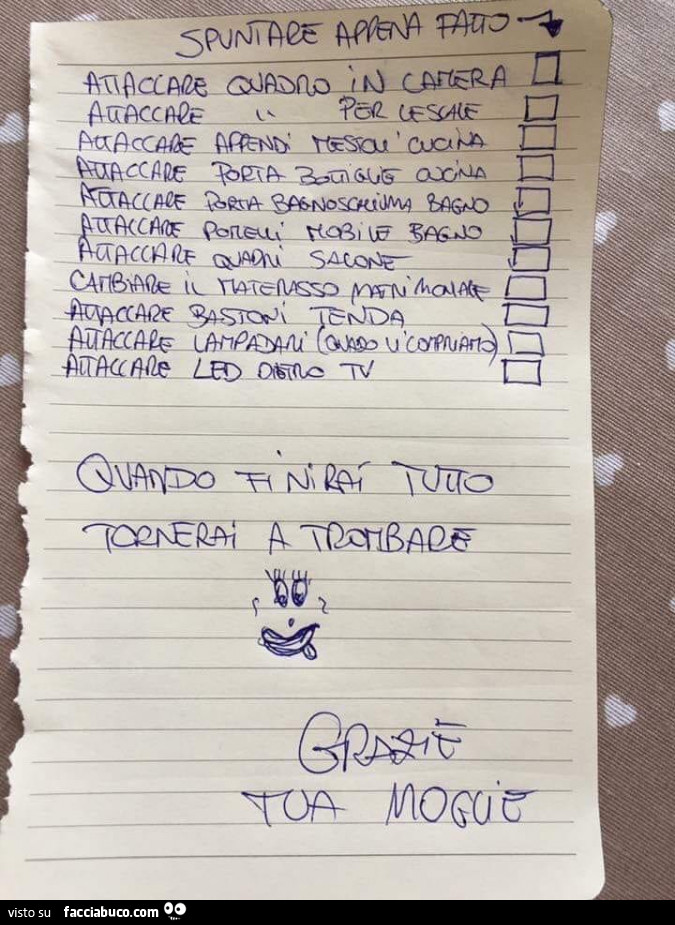 SPUNTARE APPENA FATTO
ATTACCARE QUADRO IN CAMERA
ATTACCARE " PER LE SCALE
ATTACCARE APPENDI MESTOLI CUCINA
ATTACCARE PORTA BOTTIGLIE CUCINA
ATTACCARE PORTA BAGNOSCHIUMA BAGNO
ATTACCARE POMELLI MOBILE BAGNO
ATTACCARE QUADRI SALONE
CAMBIARE IL MATERASSO MATRIMONIALE
ATTACCARE BASTONI TENDA
ATTACCARE LAMPADARI (QUANDO LI COMPRIAMO)
ATTACCARE LED DIETRO TV
QUANDO FINIRAI TUTTO
TORNERAI A TROMBARE
GRAZIE
TUA MOGLIE
visto su facciabuco.com